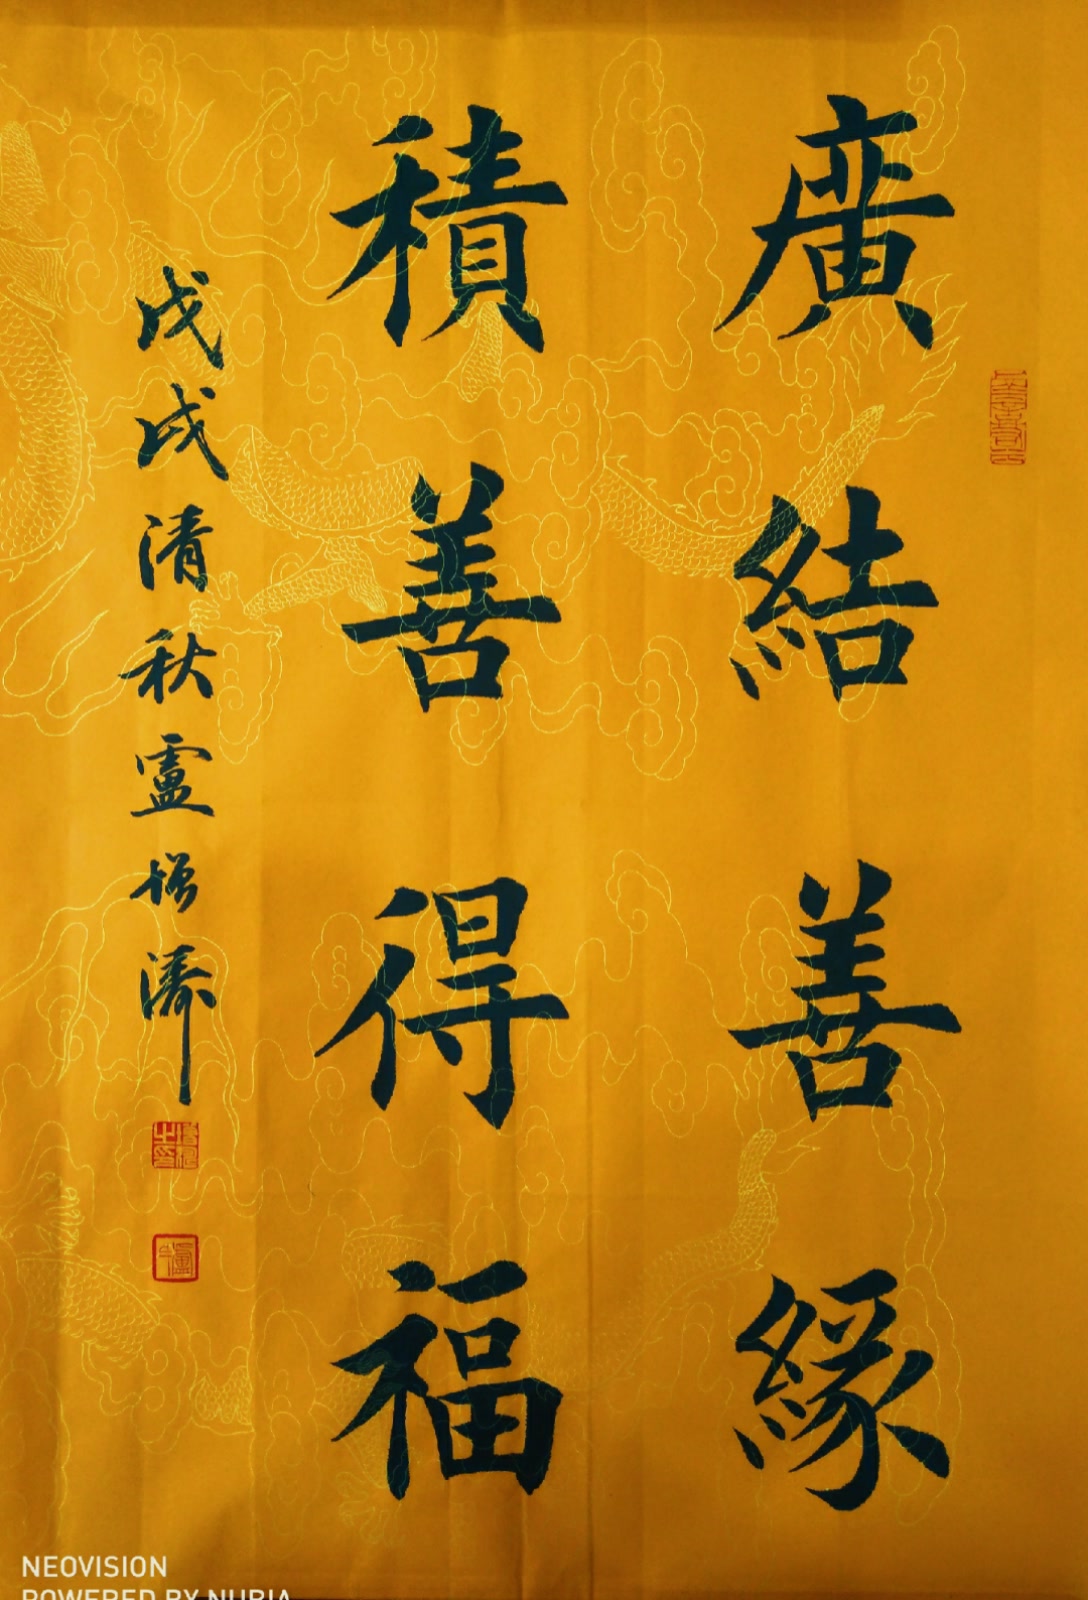 廣結善緣
積善得福
戊戌清秋盧增濤
NEOVISION
POWERED BY NUBIA